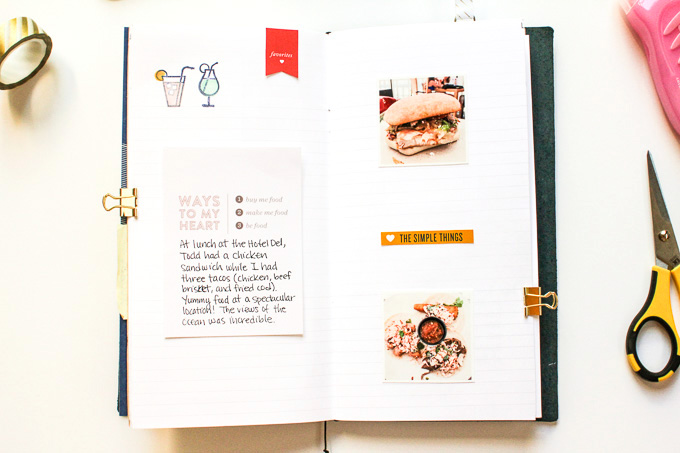 favorites
WAYS
TO MY
HEART
1 buy me food
2 make me food
3 be food
At lunch at the Hotel Del,
Todd had a chicken
sandwich while I had
three tacos (chicken, beef
brisket, and fried cod).
Yummy food at a spectacular
location! The views of the
ocean was incredible.
THE SIMPLE THINGS